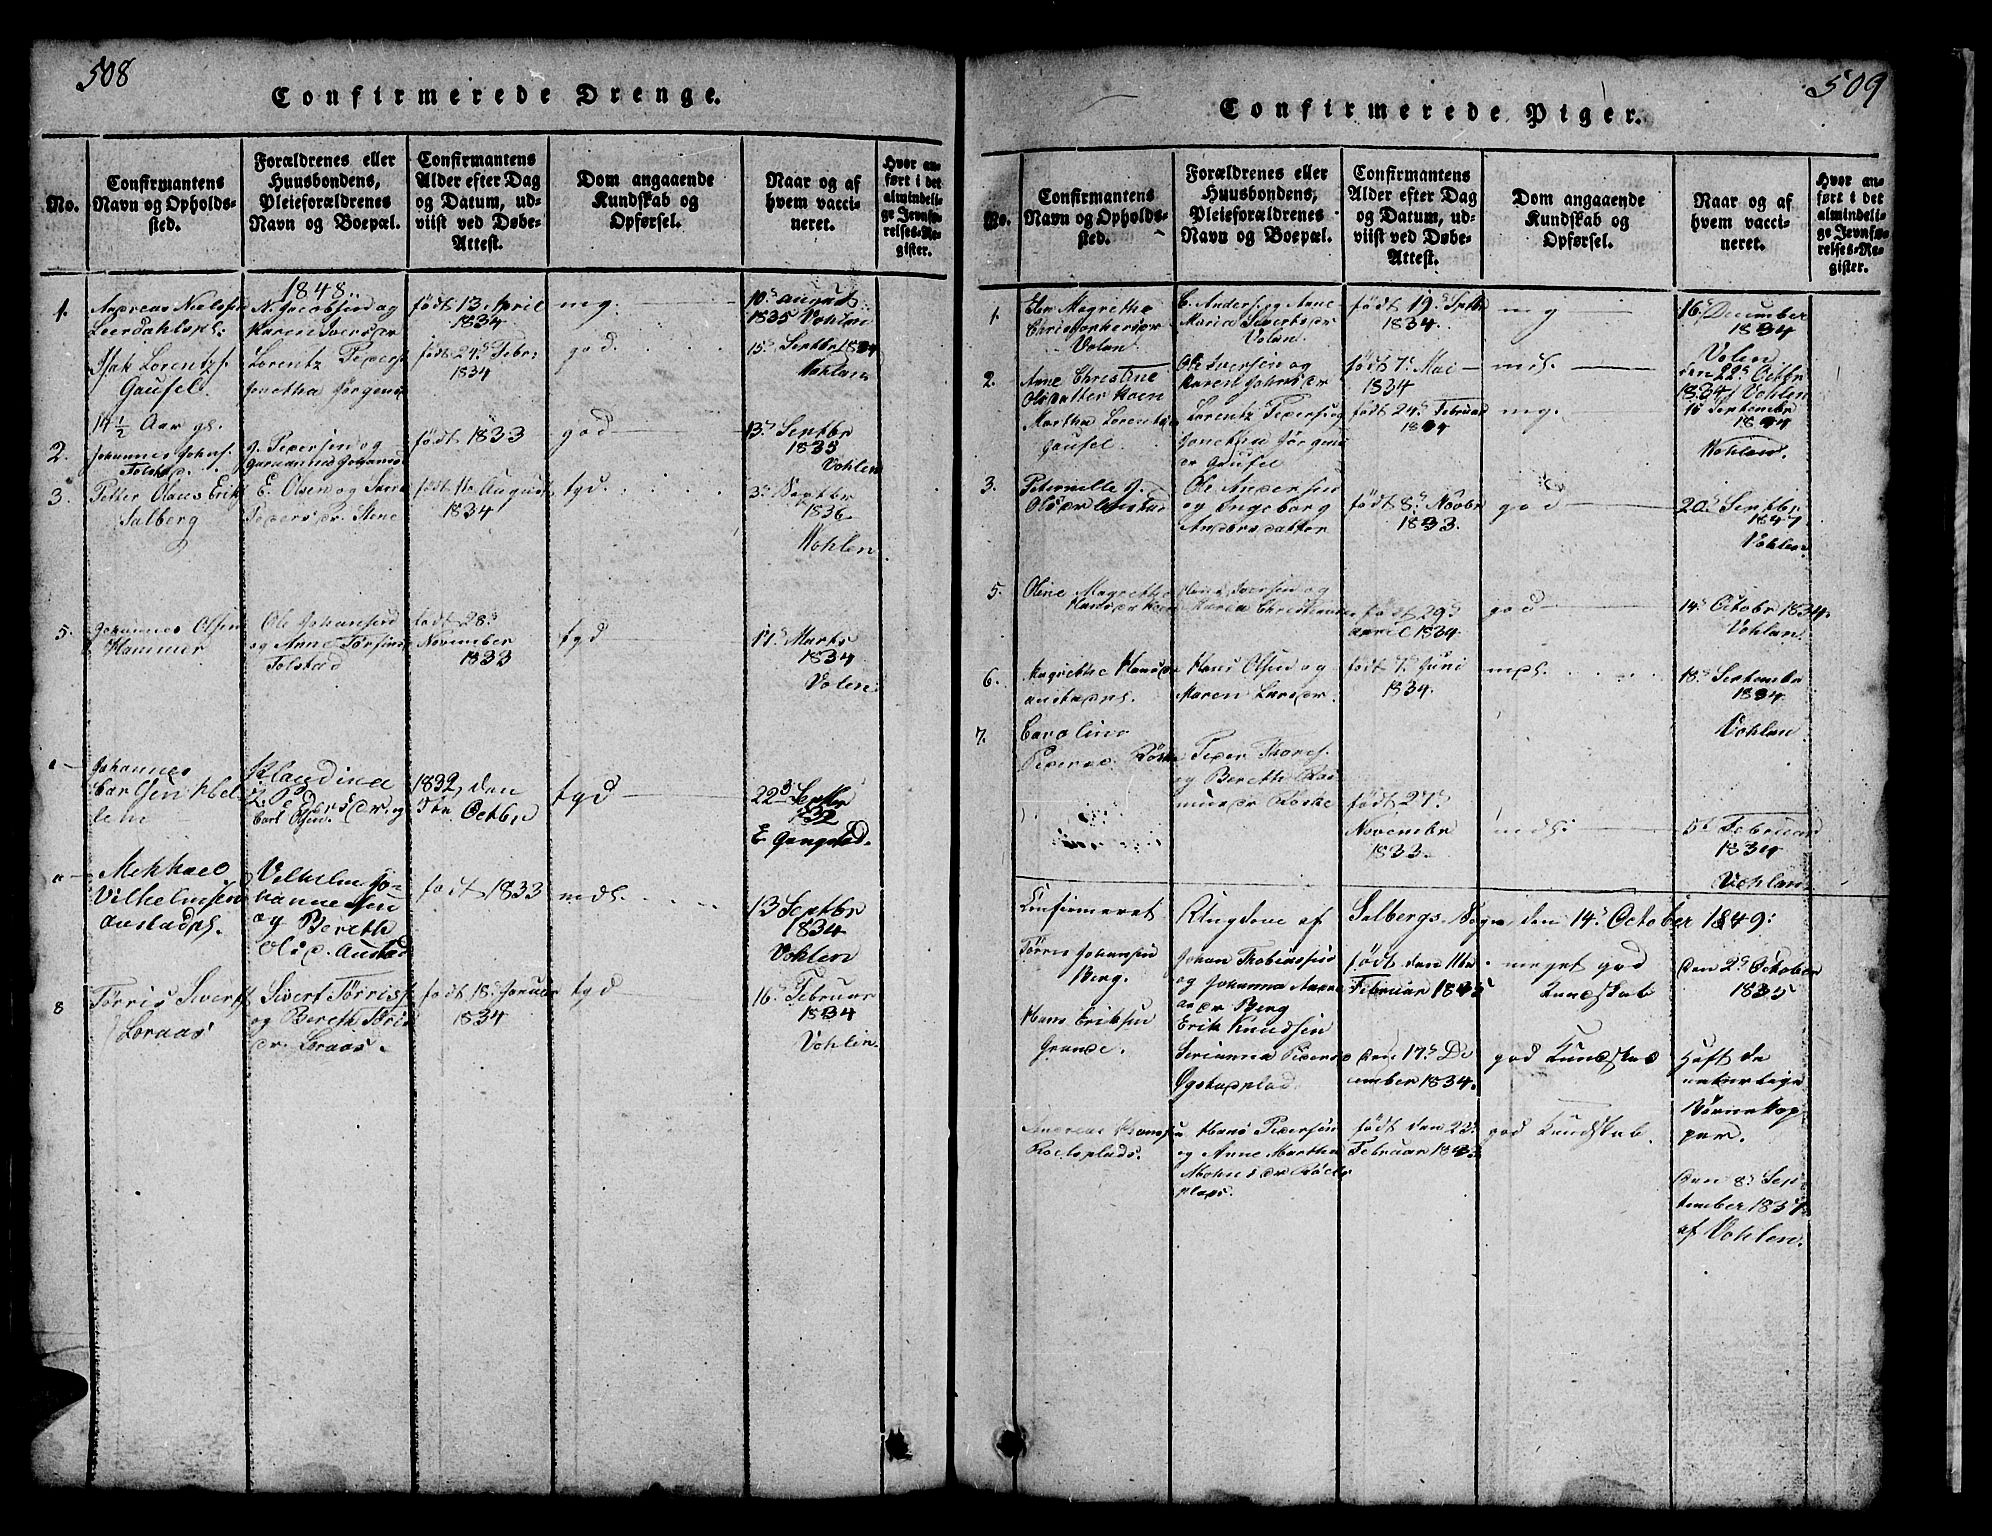 508
Confirmerede Drenge.
No.
Confirmantens
Navn og Opholds-
sted.
Forældrenes eller
Huusbondens,
Pleieforældrenes
Navn og Boepæl.
Confirmantens
Alder efter Dag
og Datum, ud-
viist ved Døbe-
Attest.
Dom angaaende
Kundskab og
Opførsel.
Naar og af
hvem vacci-
neret.
Hvor an-
ført i det
almindeli-
ge Jevnfø-
relses-Re-
gister.
1848.
1.
Andreas Nielsen
Leerdahlspl:
N. Jacobsen og
Karen Iversdr
født 13. April
1834
mg.
10. august
1835 Vohlen
Isak Lorentzs.
Gausel.
Lorentz Peders
Jonetha Jørgens
født 24. Febr.
1834
god.
15. Septbr 1834
Vohlen
14 1/2 Aar gl.
2.
Johannes Johns.
Tolstad.
J. Pedersen og
Johans
født 1833
god
13. Septbr
1835
Vohlen
3.
Petter Olaus Erik
Salberg
E. Olsen og
Pedersdr. Stene
født 16. August
1834
tgd.
3. Septbr
1836
Vohlen
5.
Johannes Olsen
Hammer
Ole Johansen
og Anne
Tolstad
født 28.
November
1833
tgd
17. Marts
1834
Volen
Johannes
Carlsen
Klaudina
Pedersdr. og
Carl Olsen
1832, den
7de Octbr
tgd
22. Septbr
1832
E Gangstad.
Mekkael
Vilhelmsen
Austadpl.
Vilhelm Jo-
hannesen
og Bereth
Olsd. Austad
født 1833
mdl.
13 Septbr
1834
Vohlen
8
Tørris Sivert
Loraas
Sivert Tørriss
og Bereth
dr. Loraas.
født 18. Januar
1834
tgd
16. Februar
1834
Vohlen
509
Confirmerede Piger.
No.
Confirmantens
Navn og Opholds-
sted.
Forældrenes eller
Huusbondens,
Pleieforældrenes
Navn og Boepæl.
Confirmantens
Alder efter Dag
og Datum, ud-
viist ved Døbe-
Attest.
Dom angaaende
Kundskab og
Opførsel.
Naar og af
hvem vacci-
neret.
Hvor an-
ført i det
almindeli-
ge Jevnfø-
relses-Re-
gister.
1.
Magrethe
Christophersdr
Volan
C. Anders. og Anne
Maria Sivertsdr
Volan.
født 19. Septbr
1834.
mg
16. December
1834
Volen
2.
Anne Christine
Olsdatter Koen
Ole Iversen og
Karen Johnsdr
født 7. Mai
1834
mdl.
den 22. Octbr
1834 Vohlen
Martha Lorentsdr
Gausel
Lorentz Peders. og
Jonetha Jørgens
dr Gausel
født 24. Februar
1834
mg.
15 Septembr
1834
Vohlen.
3.
Peternelle J.
Olsdr Austad
Ole Andersen
og Ingeborg
Andersdatter
født 8. Novbr
1833.
god
20. Septbr
1847
Vohlen.
5.
Oline Magrethe
Hansdr Koen
Iversen og
Maren Christians
født 29.
april 1834.
god
14. Octobr 1834.
Vohlan
6.
Magrethe Hansdr
austadpl.
Hans Olsen og
Maren Larsdr.
født 7. Juni
1834.
mdl.
18. Septembr
1834.
Vohlan
7.
Caroline
Pedersd.
Peder Thores.
og Bereth Ras
musdr
født 27.
Novembr
1833.
mdl:
5t Februar
1834
Vohlan
Confirmeret Ungdom af Salbergs Sogn den 14. October 1849:
Tørris Johansen
Berg.
Johan Thobiassen
og Johanna
dr Berg
født den 11te
Februar 1835
meget god
Kundskab
den 2. October
1835
Hans Eriksen
Grande.
Erik Knudsen
Serianna Peders
den 17. De
cember 1834.
god Kundskab
Haft de
naturlige
Børnekop
per.
Andreas Hanssen
Hans Pedersen
og Anne Martha
plads.
født den 23.
Februar
god Kundskab.
den 8. Sep
tember 1837
af Vohlen.